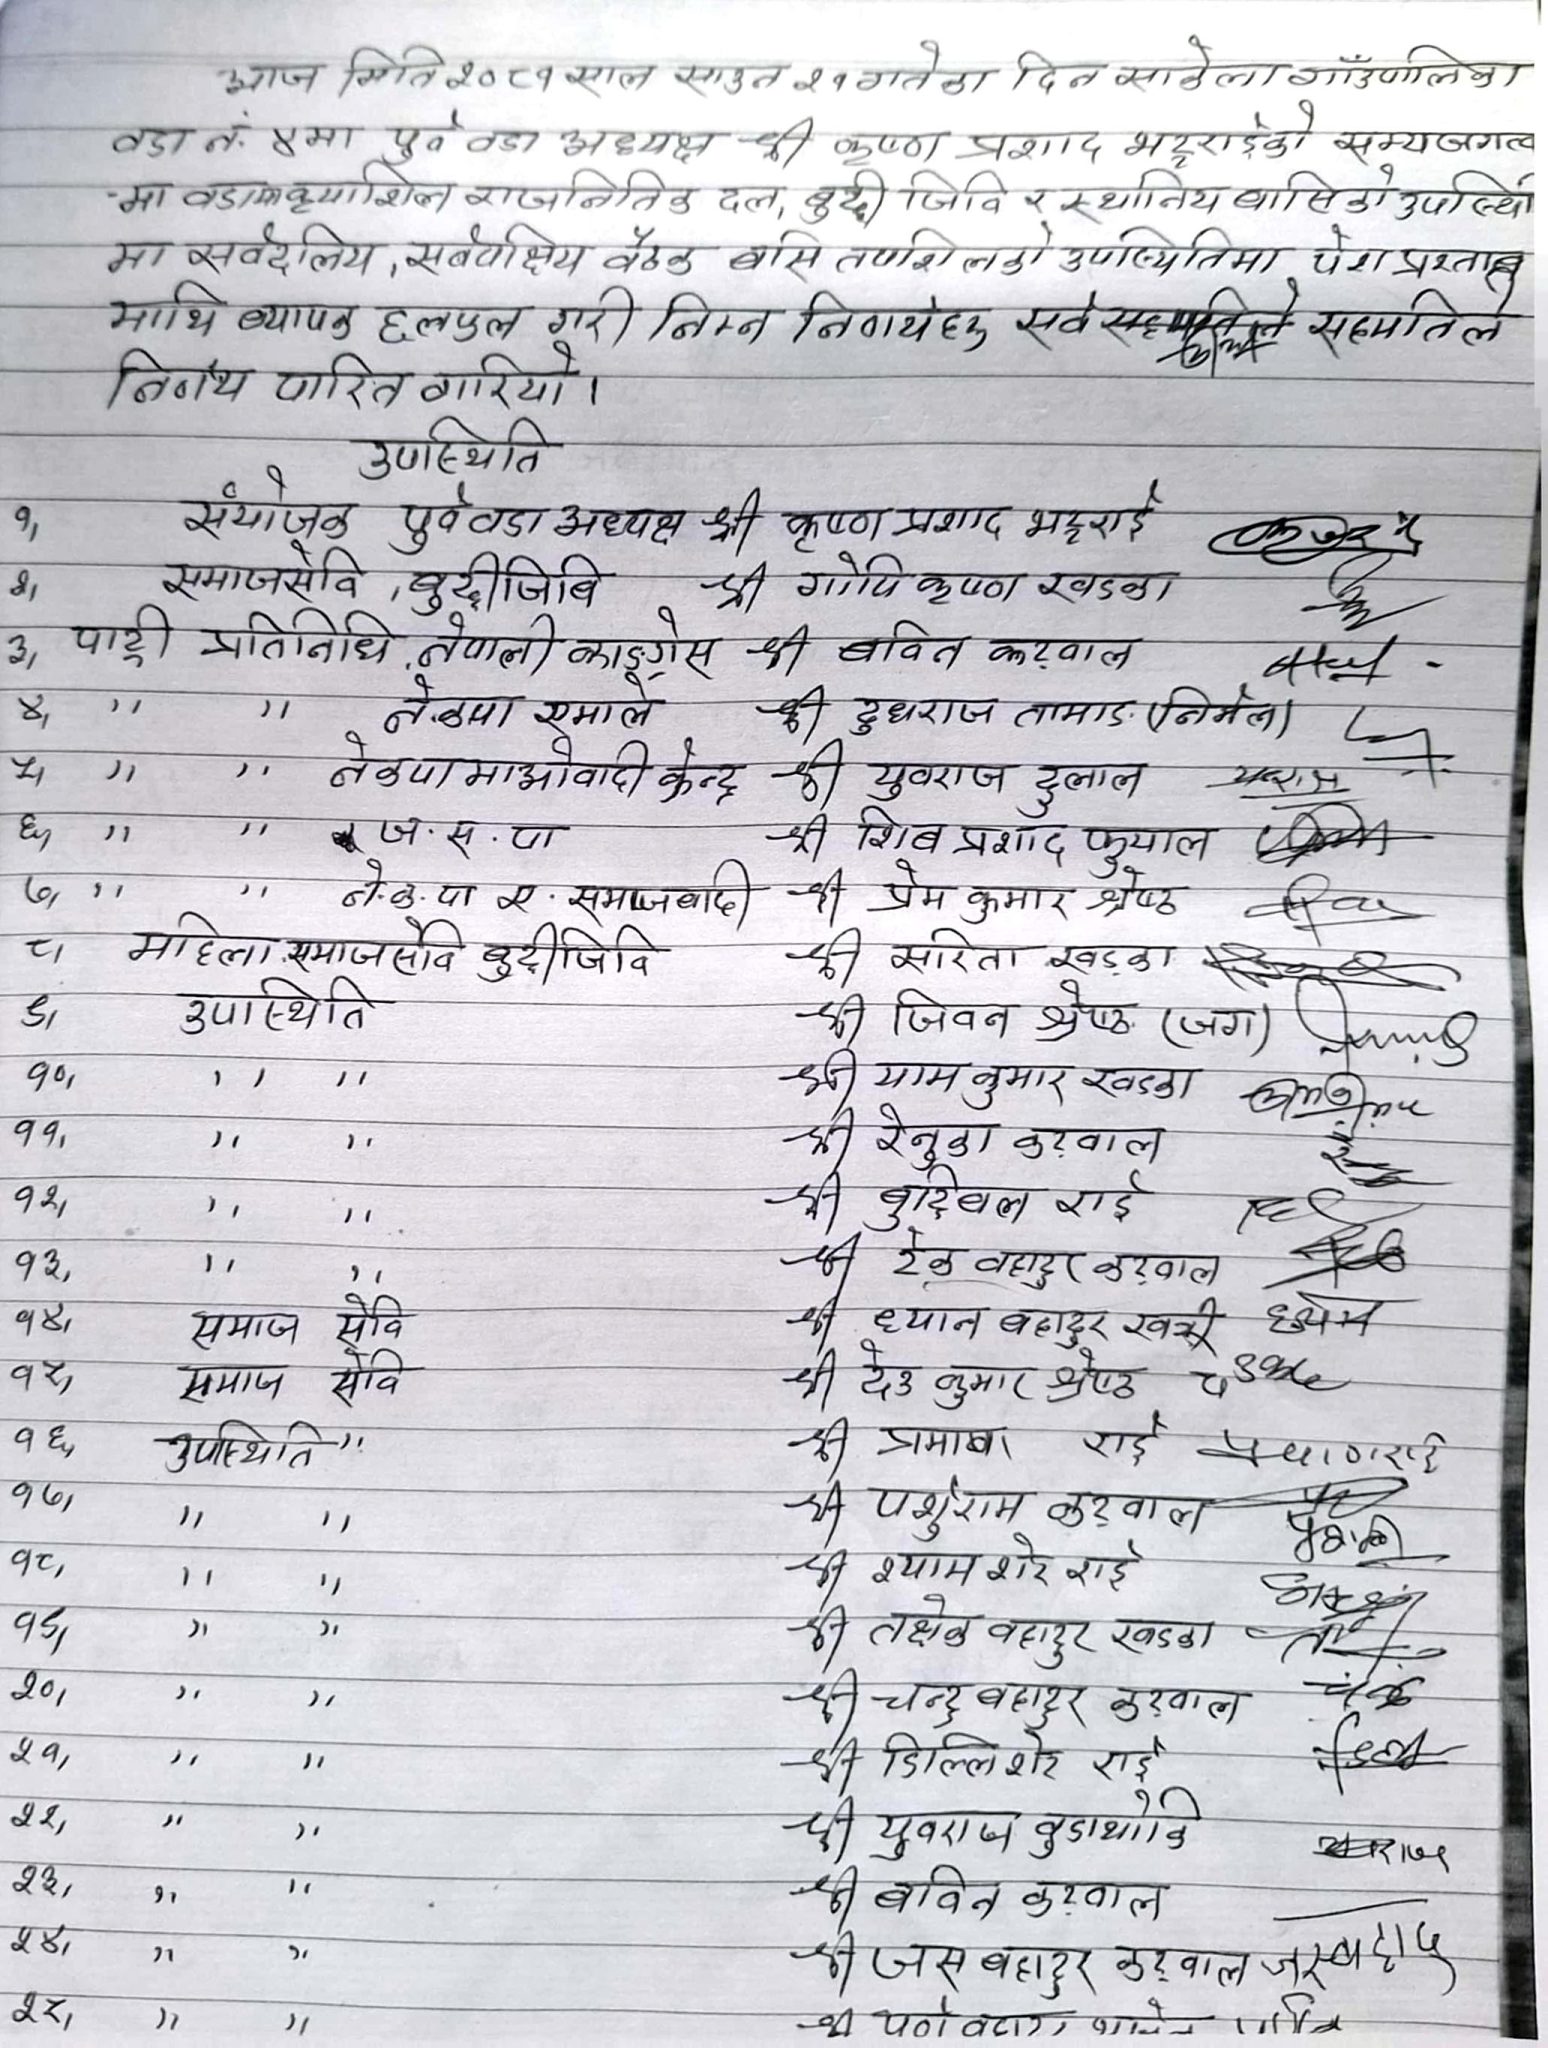 आज मिति २०८१ साल साउन २१ गतेका दिन साकेला गाँउपालिका
वडा नं. ४मा पुर्व वडा अध्यक्ष श्री कृष्ण प्रशाद भट्टराईको सम्यजगत्व
-मा वडामा कृयाशिल राजनितिक दल, बुद्दी जिवि र स्थानिय बासिको उपस्थि
मा सर्वदलिय, सर्वपक्षिय बैठक बसि तपशिलको उपस्थितिमा पेश प्रस्ताब
माथि ब्यापक छलफल गरी निम्न निर्णयहरु सर्व सहमतिले
निर्णय पारित गारियो।
उपस्थिति
१, संयोजक पुर्व वडा अध्यक्ष श्री कृष्ण प्रशाद भट्टराई
२, समाजसेवि, बुद्दीजिबि श्री गोपि कृष्ण खडका
३, पाट्री प्रतिनिधि, नेपाली काङ्ग्रेस श्री बविन कट्वाल
४, " " ने.कपा एमाले श्री दुधराज तामाङ (निर्मल)
५, " " नेकपा माओवादी केन्द्र श्री युवराज दुलाल युवराज
६, " " ज.स.पा श्री शिब प्रशाद फुयाल
७, " " ने.क.पा ए. समाजबादी श्री प्रेम कुमार श्रेष्ठ
८, महिला समाजसेवि बुद्दीजिवि श्री सरिता खड्का
९, उपास्थिति श्री जिवन श्रेष्ठ (जग)
१०, " " श्री याम कुमार खडका
११, " " श्री रेनुका कट्वाल
१२, " " श्री बुद्दिबल राई
१३, " " श्री टेक बहादुर कट्वाल
१४, समाज सेवि श्री ध्यान बहादुर खत्री
१५, समाज सेवि श्री देउ कुमार श्रेष्ठ
१६, उपस्थिति " श्री राई
१७, " " श्री पर्शुराम कट्वाल
१८, " " श्री श्याम शेर राई
१९, " " श्री तक्षेक बहादुर खडका
२०, " " श्री चन्द्र बहादुर कट्वाल
२१, " " श्री डिल्लि शेर राई
२२, " " श्री युवराज बुडाथोकि
२३, " " श्री बविन कट्वाल
२४, " " श्री जस बहादुर कट्वाल जसबहादु
२५, " " श्री